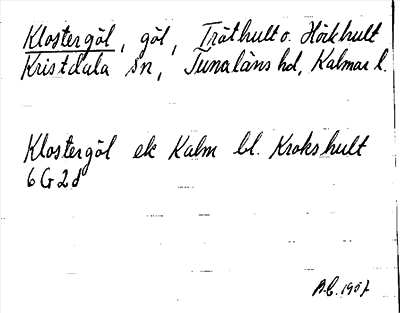 Klostergöl, göl, Träthult o. Hökhult
Kristdala sn, Tunaläns hd, Kalmar l.
Klostergöl ek Kalm bl. Krokshult
6G2d
1967